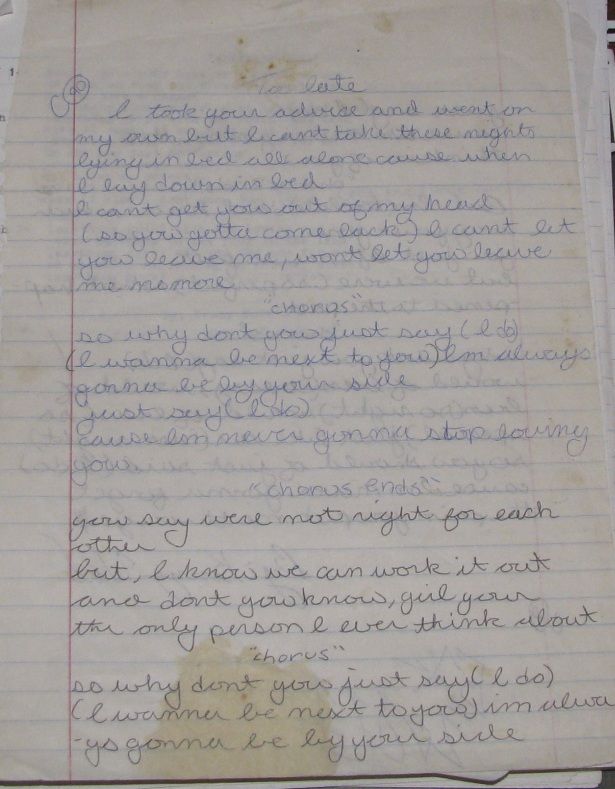 To late
I took your advice and went on
my own but I cant take these nights
lying in bed all alone cause when
I lay down in bed
I cant get you out of my head
(so you gotta come back) I cant let
you leave me, wont let you leave
me nomore
"chorus"
so why dont you just say (I do)
(I wanna be next to you) Im always
gonna be by your side
just say (I do)
cause Im never gonna stop loving
you
"chorus ends"
you say were not right for each
other
but, I know we can work it out
and dont you know, girl your
the only person I ever think about
"chorus"
so why dont you just say (I do)
(I wanna be next to you) im alwa
-ys gonna be by your side